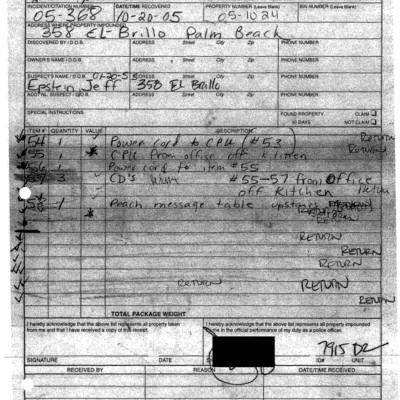 INCIDENT/CITATION NUMBER DATE/TIME RECOVERED PROPERTY NUMBER (Leave Blank) BIN NUMBER (Leave Blank)
05-368 10-20-05 05-1024
ADDRESS WHERE PROPERTY IMPOUNDED
358 EL-Brillo Palm Beach
DISCOVERED BY / D.O.B. ADDRESS Street City Zip PHONE NUMBER
OWNER'S NAME / D.O.B. ADDRESS Street City Zip PHONE NUMBER
SUSPECT'S NAME / D.O.B. 01-20-53 ADDRESS Street City Zip PHONE NUMBER
Epstein Jeff 358 El Brillo
ADD'TNL. SUSPECT / D.O.B. ADDRESS Street City Zip PHONE NUMBER
SPECIAL INSTRUCTIONS FOUND PROPERTY CLAIM
90 DAYS NOT CLAIM
ITEM # QUANTITY VALUE DESCRIPTION
54 1 Power cord to CPU #53 Return
55 1 CPU from office off Kitchen Return
56 1 Power cord to item #55
3 CD's #55-57 from Office
off Kitchen Return
58 1 Peach message table upstairs
RETURN
RETURN
RETURN
RETURN
RETURN
RETURN RETURN
RETURN
TOTAL PACKAGE WEIGHT
I hereby acknowledge that the above list represents all property taken
from me and that I have received a copy of this receipt.
I hereby acknowledge that the above list represents all property impounded
by me in the official performance of my duty as a police officer.
7915 DR
SIGNATURE DATE ID# UNIT
RECEIVED BY REASON DATE/TIME RECEIVED